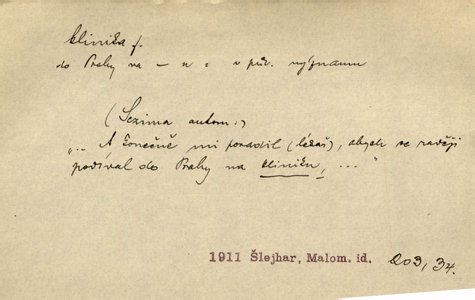 klinika f.
do Prahy na – u : v pův. významu
(Sezima autom:)
„.. A konečně mi poradil (lékař), abych se raději
podíval do Prahy na kliniku, ..."
1911 Šlejhar, Malom. id. 203, 34.